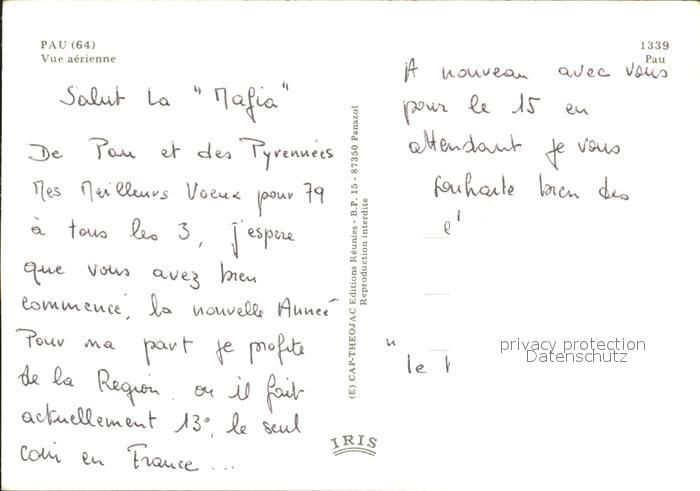 PAU (64)
Vue aérienne
Salut La "Mafia"
De Pau et des Pyrennées
Mes Meilleurs Voeux pour 79
à tous les 3, j'espere
que vous avez bien
commencé, la nouvelle Année
Pour ma part je profite
de la Region où il fait
actuellement 13°, le seul
coin en France ...
(E) CAP-THEOJAC Editions Réunies - B.P. 15 - 87350 Panazol
Reproduction interdite
IRIS
1339
Pau
A nouveau avec vous
pour le 15 en
attendant je vous
souhaite bien des
privacy protection
Datenschutz
" le